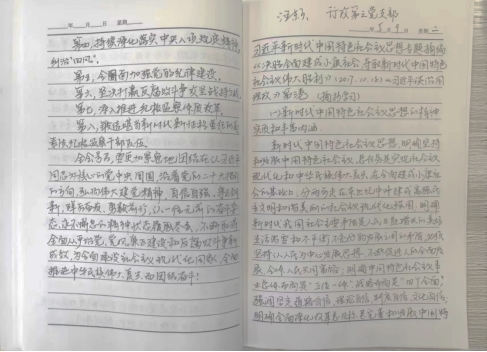 年 月 日 星期
第四，持续深化落实中央八项规定精神
纠治"四风"。
第五，全面加强党的纪律建设。
第六，坚决打赢反腐败斗争攻坚战持久战。
第七，深入推进纪检监察体制改革。
第八，锻造堪当新时代新征程重任的高
素质纪检监察干部队伍。
全会号召，要更加紧密地团结在以习近平
同志为核心的党中央周围，沿着党的二十大指引
的方向，弘扬伟大建党精神，自信自强、守正创
新，踔厉奋发、勇毅前行，以一往无前的奋斗姿
态、永不懈怠的精神状态履职尽责，不断取得
全面从严治党、党风廉政建设和反腐败斗争新
成效，为全面建设社会主义现代化国家、全面
推进中华民族伟大复兴而团结奋斗！
第三党支部
5月9日 二
习近平新时代中国特色社会主义思想专题摘编
《决胜全面建成小康社会 夺取新时代中国特色
社会主义伟大胜利》(2017.10.18)《习近平谈治国
理政》第三卷 (摘抄学习)
新时代中国特色社会主义思想的精神
实质和丰富内涵
新时代中国特色社会主义思想，明确坚持
和发展中国特色社会主义，总任务是实现社会主义
现代化和中华民族伟大复兴，在全面建成小康社
会的基础上，分两步走在本世纪中叶建成富强民
主文明和谐美丽的社会主义现代化强国，明确
新时代我国社会主要矛盾是人民日益增长的美好
生活需要和不平衡不充分的发展之间的矛盾，必须
坚持以人民为中心的发展思想，不断促进人的全面发
展、全体人民共同富裕；明确中国特色社会主义事
业总体布局是"五位一体"、战略布局是"四个全面"，
强调坚定道路自信、理论自信、制度自信、文化自信；
明确全面深化改革总目标是完善和发展中国特